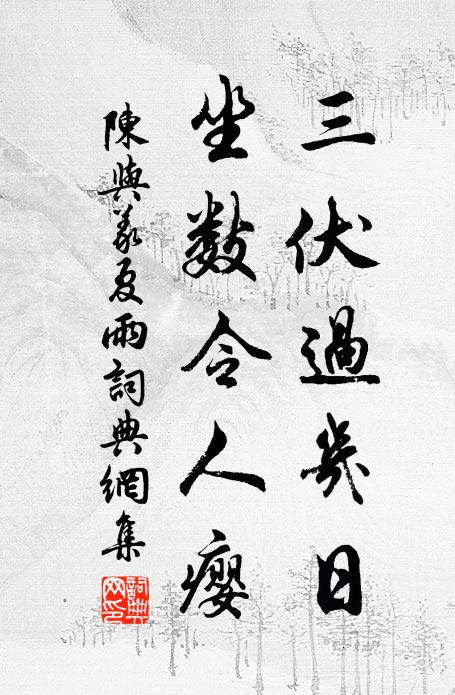 三伏過幾日
坐數令人癭
陳與義夏雨詞典網集
詞典網印